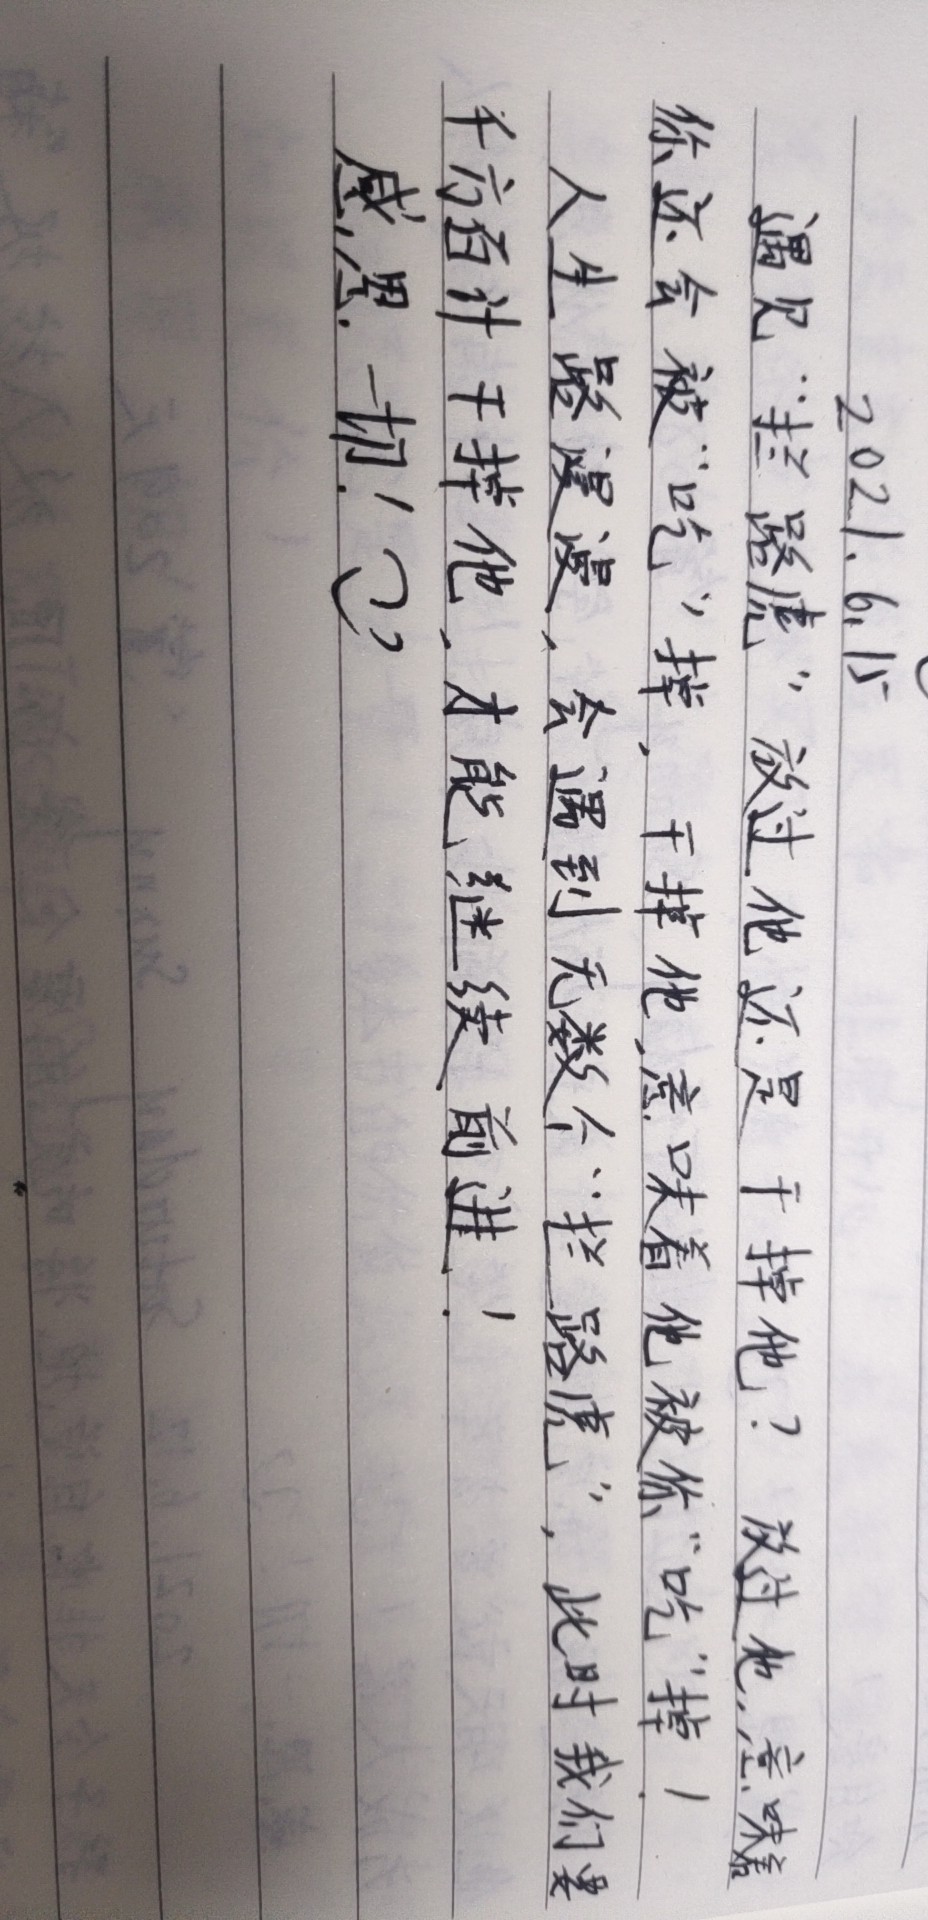 2021.6.15
遇见“拦路虎”放过他还是干掉他？放过他,意味着
你还会被“吃”掉，干掉他，意味着他被你“吃”掉！
人生路漫漫，会遇到无数个“拦路虎”，此时我们要
千方百计干掉他，才能继续前进！
感恩一切！